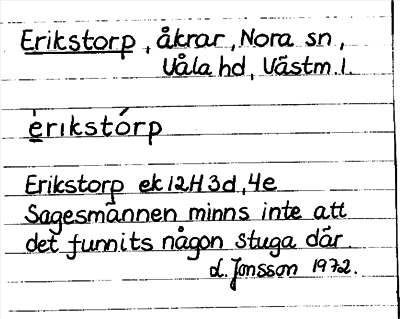 Erikstorp, åkrar, Nora sn,
Våla hd, Västm. l.
èrıkstórp
Erikstorp ek 12H 3d, 4e
Sagesmannen minns inte att
det funnits någon stuga där.
L. Jonsson 1972.